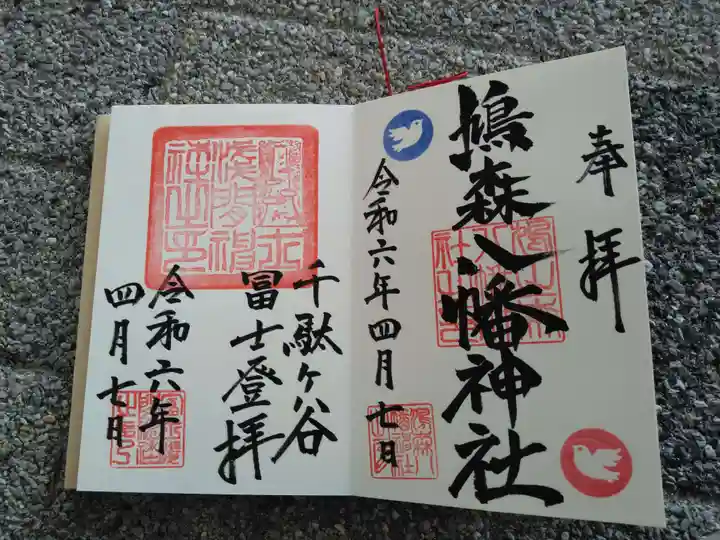 奉拝
鳩森八幡神社
令和六年四月七日
千駄ヶ谷
冨士登拝
令和六年
四月七日